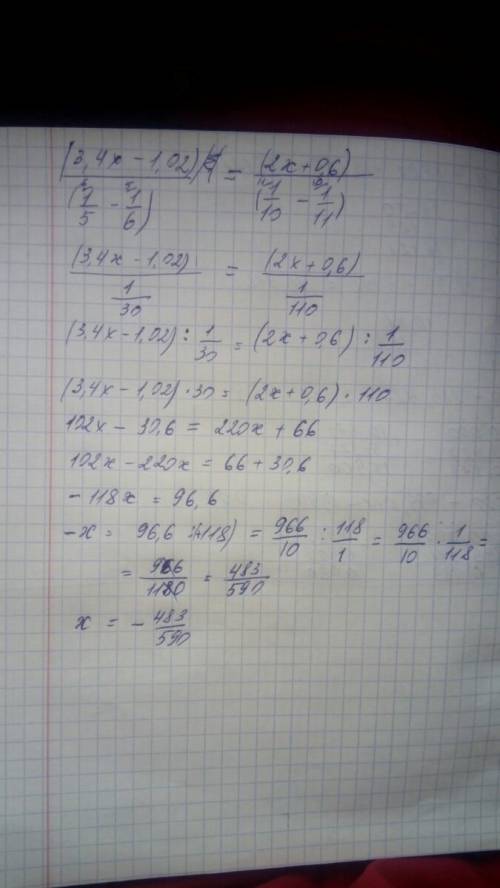 (3,4x - 1,02) / (1/5 - 1/6) = (2x + 0,6) / (1/10 - 1/11)
(3,4x - 1,02) / (1/30) = (2x + 0,6) / (1/110)
(3,4x - 1,02) : 1/30 = (2x + 0,6) : 1/110
(3,4x - 1,02) · 30 = (2x + 0,6) · 110
102x - 30,6 = 220x + 66
102x - 220x = 66 + 30,6
- 118x = 96,6
-x = 96,6 : 118) = 966/10 : 118/1 = 966/10 · 1/118 =
= 966/1180 = 483/590
x = - 483/590